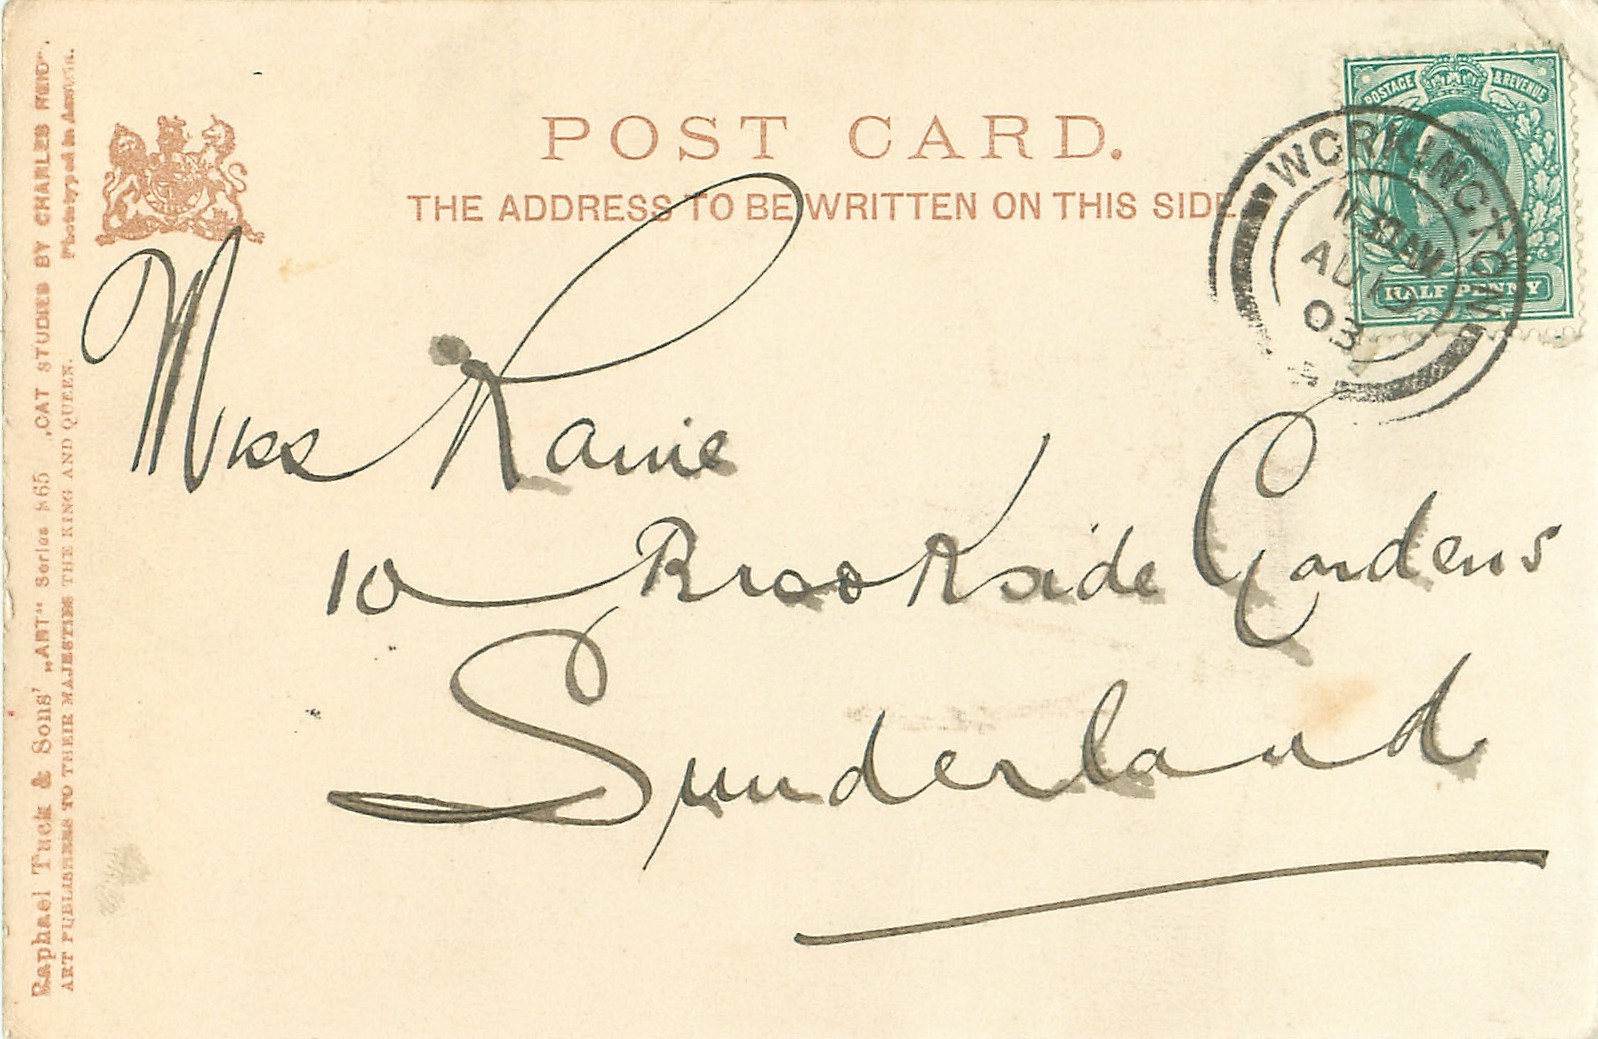 POST CARD.
THE ADDRESS TO BE WRITTEN ON THIS SIDE
POSTAGE & REVENUE
HALF PENNY
WORKINGTON
11 30 AM
AU 19
03
Miss Raine
10 Brookside Gardens
Sunderland
Raphael Tuck & Sons' „ART“ Series 865 „CAT STUDIES BY CHARLES REID“.
ART PUBLISHERS TO THEIR MAJESTIES THE KING AND QUEEN. Phototyped in Austria.